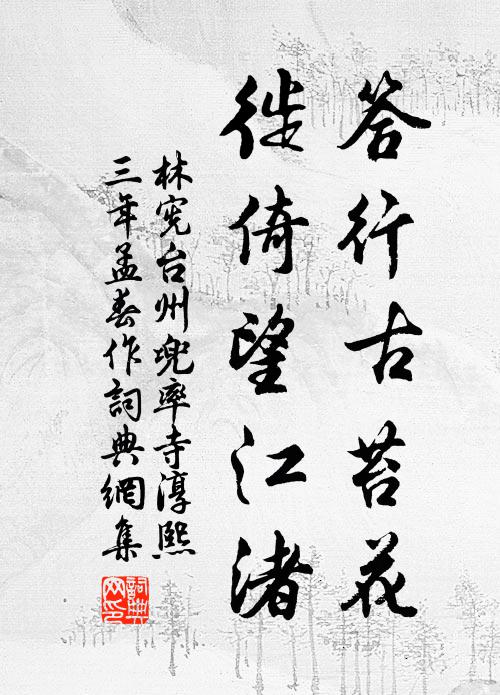 答行古苔花
徙倚望江渚
林宪台州兜率寺淳熙
三年孟春作詞典網集
詞典
网印